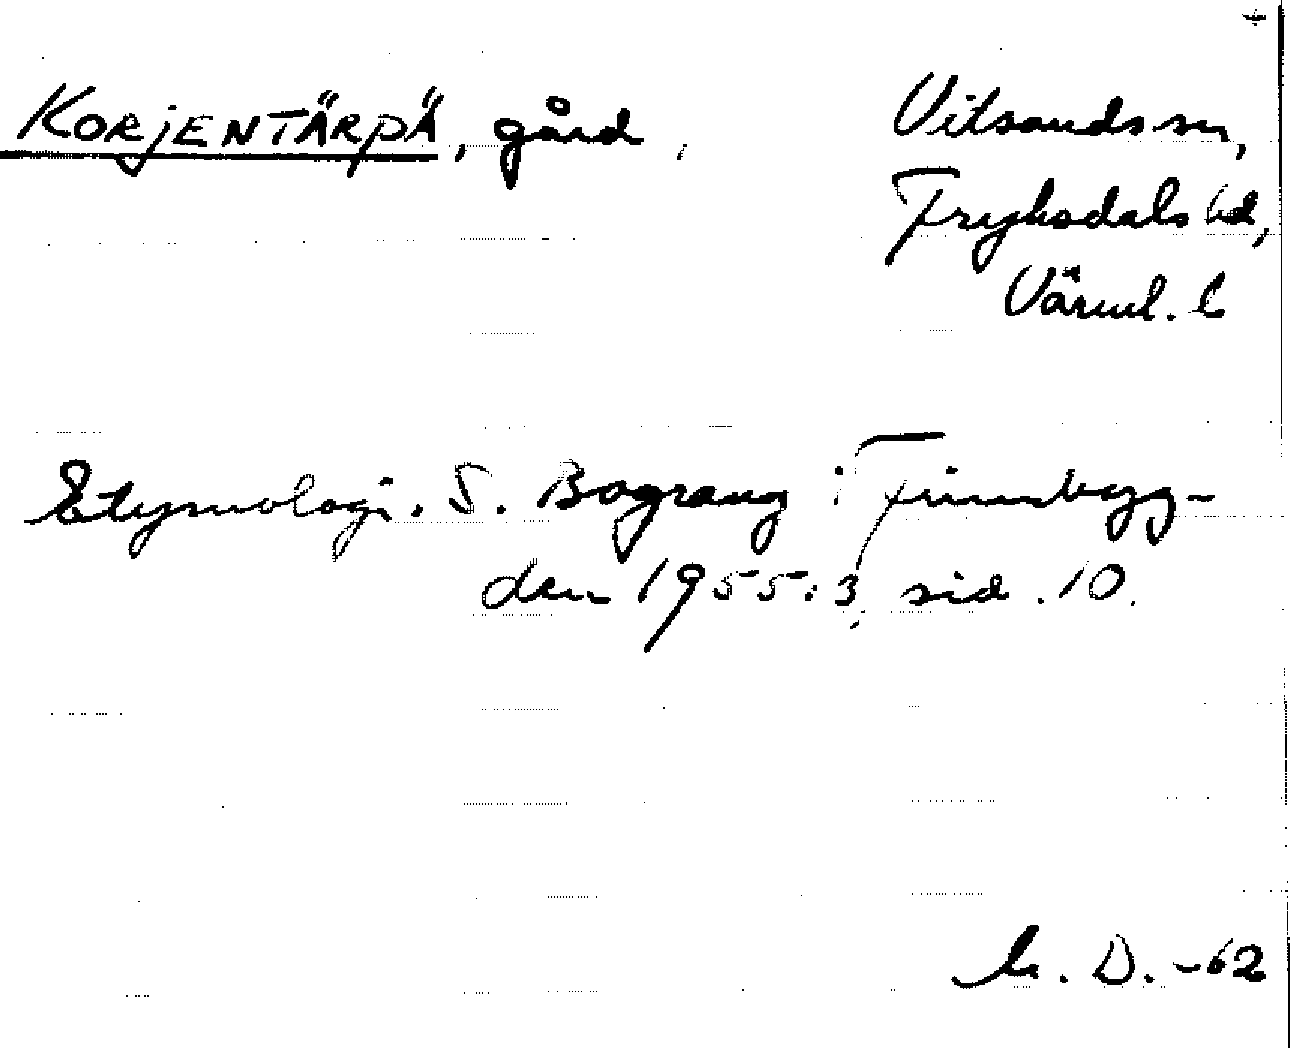 KORJENTÄRPÄ, gård,
Vitsands sn,
Fryksdals hd,
Värml. l
Etymologi. S. Bograng i Finnbyg-
den 1955:3, sid. 10.
D. -62